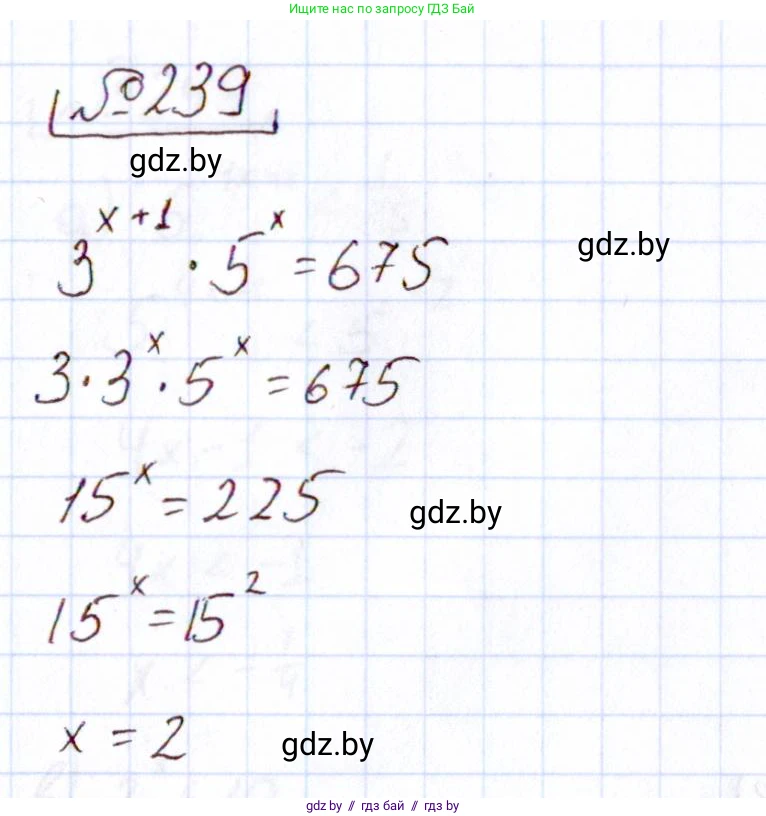 Ищите нас по запросу ГДЗ Бай
№239
gdz.by
3^{x+1} · 5^x = 675
gdz.by
3 · 3^x · 5^x = 675
15^x = 225
gdz.by
15^x = 15^2
x = 2
gdz.by
gdz.by // гдз бай // gdz.by